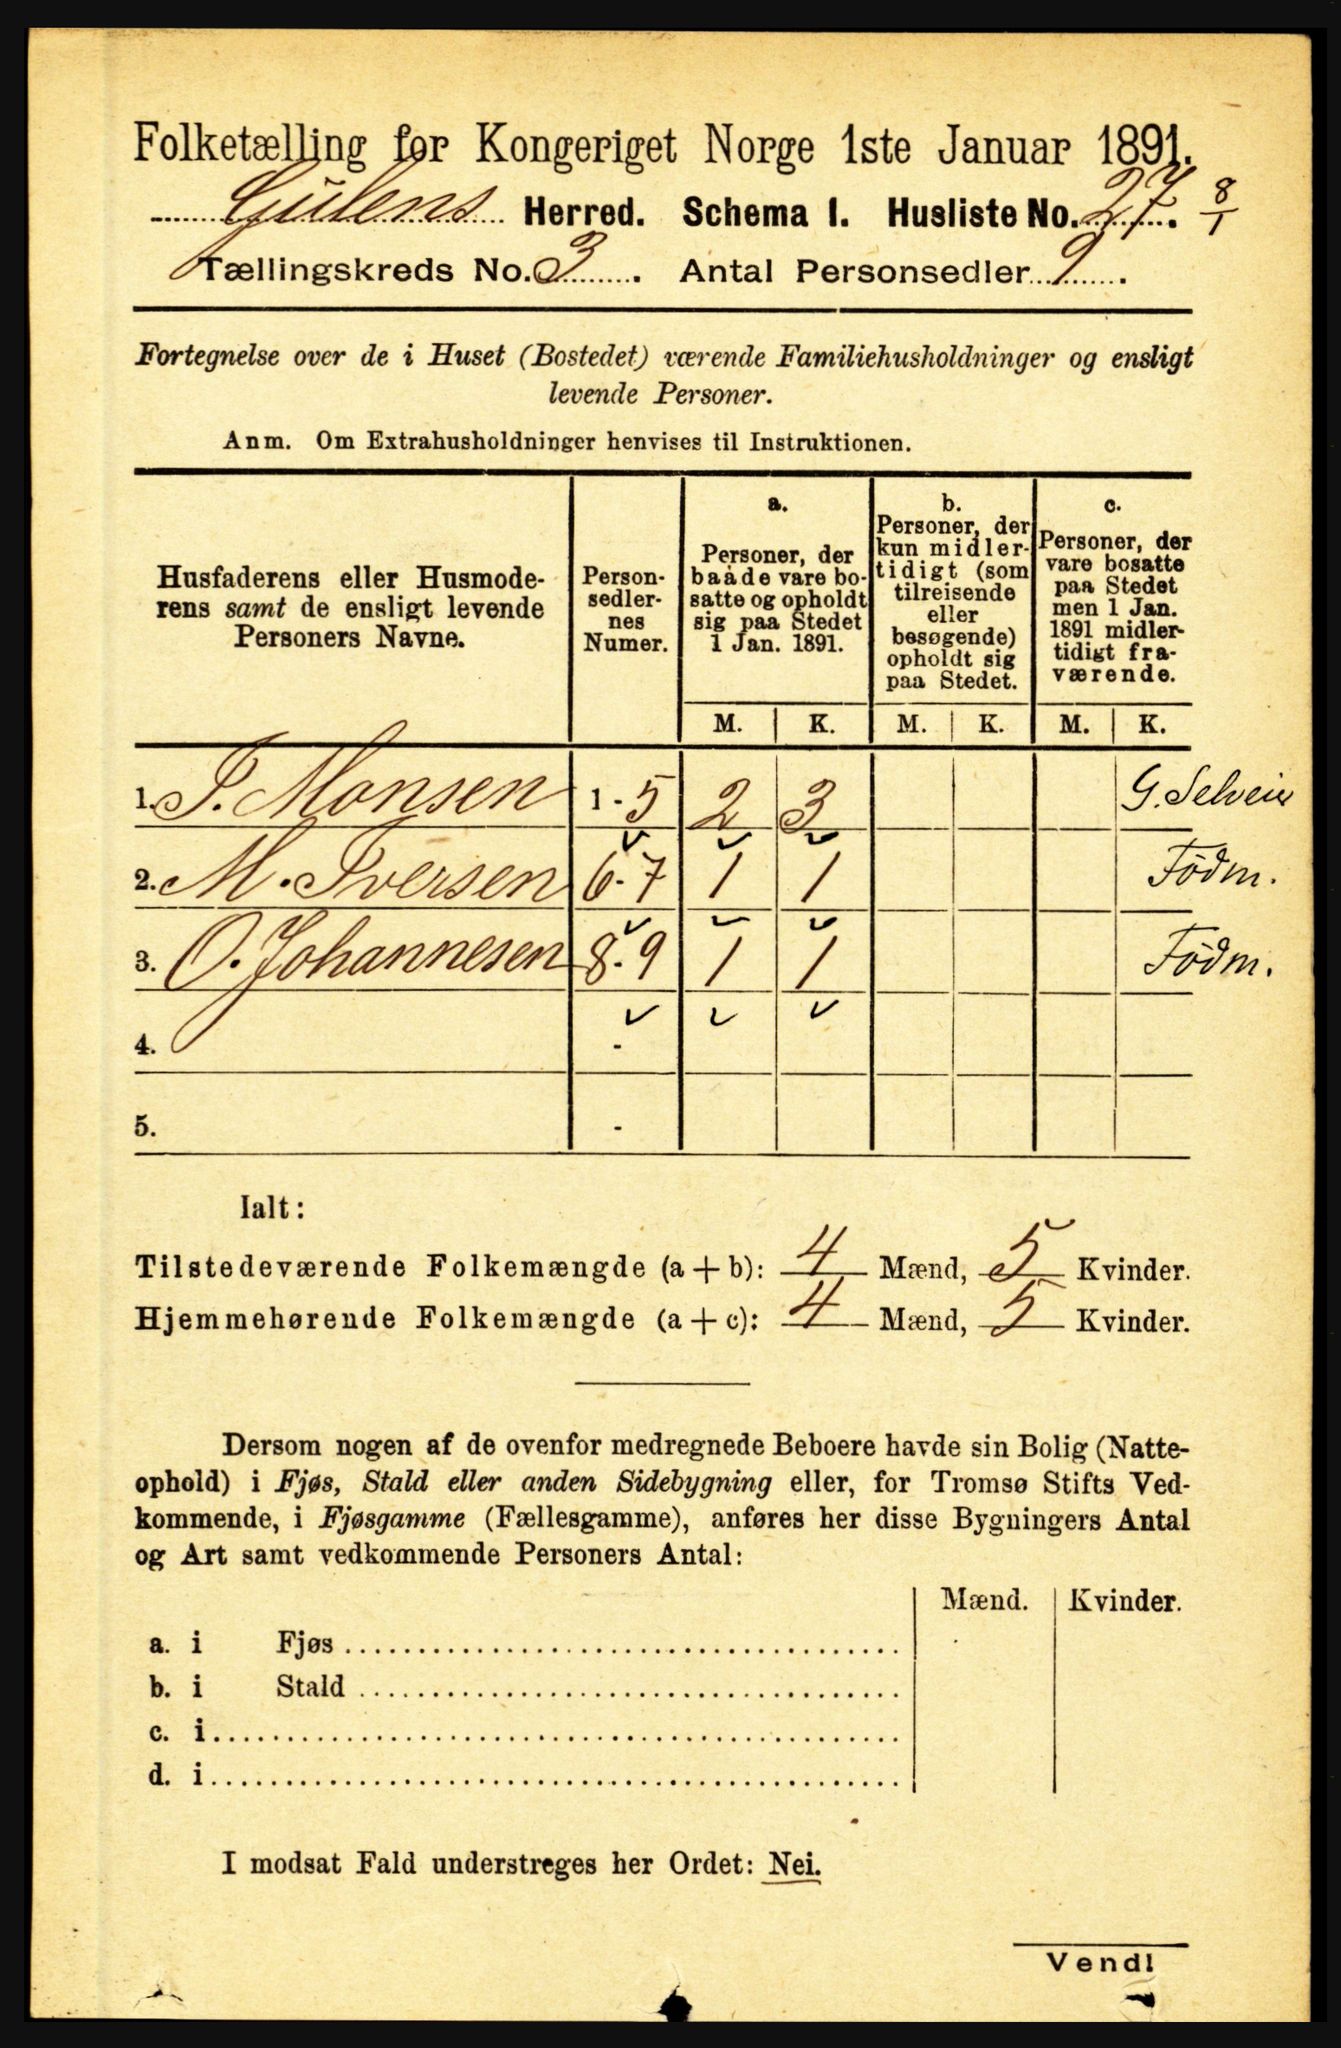 Folketælling for Kongeriget Norge 1ste Januar 1891.
Gulens Herred. Schema I. Husliste No. 27. 8/1
Tællingskreds No. 3. Antal Personsedler 9.
Fortegnelse over de i Huset (Bostedet) værende Familiehusholdninger og ensligt
levende Personer.
Anm. Om Extrahusholdninger henvises til Instruktionen.
Husfaderens eller Husmode-
rens samt de ensligt levende
Personers Navne.
Person-
sedler-
nes
Numer.
a.
Personer, der
baade vare bo-
satte og opholdt
sig paa Stedet
1 Jan. 1891.
b.
Personer, der
kun midler-
tidigt (som
tilreisende
eller
besøgende)
opholdt sig
paa Stedet.
c.
Personer, der
vare bosatte
paa Stedet
men 1 Jan.
1891 midler-
tidigt fra-
værende.
M. K. M. K. M. K.
1. P. Monsen 1 - 5 2 3 G. Selveier
2. M. Iversen 6 - 7 1 1 Födm.
3. O. Johannesen 8 - 9 1 1 Födm.
4. -
5. -
Ialt:
Tilstedeværende Folkemængde (a + b): 4 Mænd, 5 Kvinder.
Hjemmehørende Folkemængde (a + c): 4 Mænd, 5 Kvinder.
Dersom nogen af de ovenfor medregnede Beboere havde sin Bolig (Natte-
ophold) i Fjøs, Stald eller anden Sidebygning eller, for Tromsø Stifts Ved-
kommende, i Fjøsgamme (Fællesgamme), anføres her disse Bygningers Antal
og Art samt vedkommende Personers Antal:
Mænd. Kvinder.
a. i Fjøs
b. i Stald
c. i
d. i
I modsat Fald understreges her Ordet: Nei.
Vend!